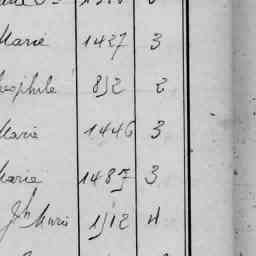 Marie 1427 3
éophile 812 2
Marie 1446 3
Marie 1487 3
Jn Marie 1512 4